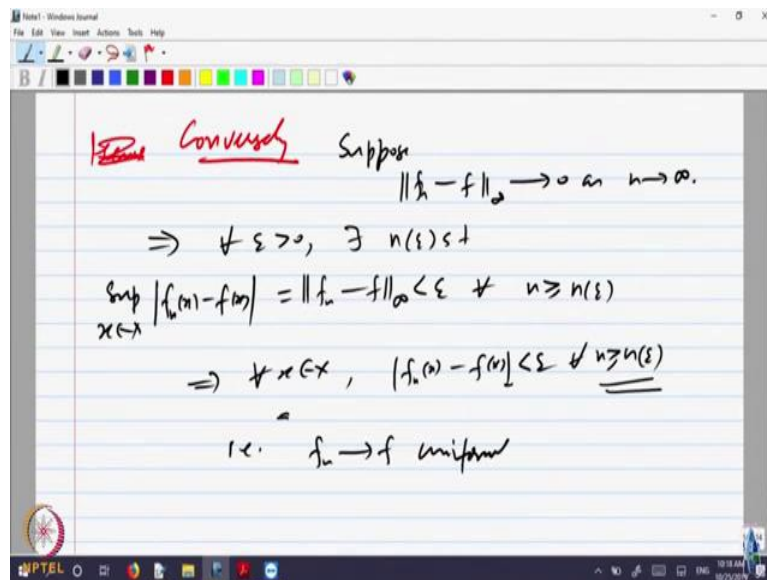 Note1 - Windows Journal
File Edit View Insert Actions Tools Help
B I
Conversely Suppose
‖fₙ − f‖∞ → 0 as n → ∞.
⇒ ∀ ε > 0, ∃ n(ε) s t
Sup |fₙ(x) − f(x)| = ‖fₙ − f‖∞ < ε ∀ n ≥ n(ε)
x ∈ X
⇒ ∀ x ∈ X, |fₙ(x) − f(x)| < ε ∀ n ≥ n(ε)
i.e. fₙ → f uniform
NPTEL
ENG
10:18 AM